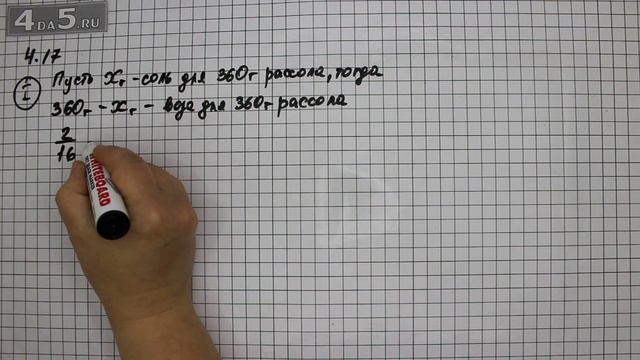 4DA5.RU
4.17
I Пусть Xг - соль для 360г рассола, тогда
360г - Xг - вода для 360г рассола
2
16
WHITEBOARD